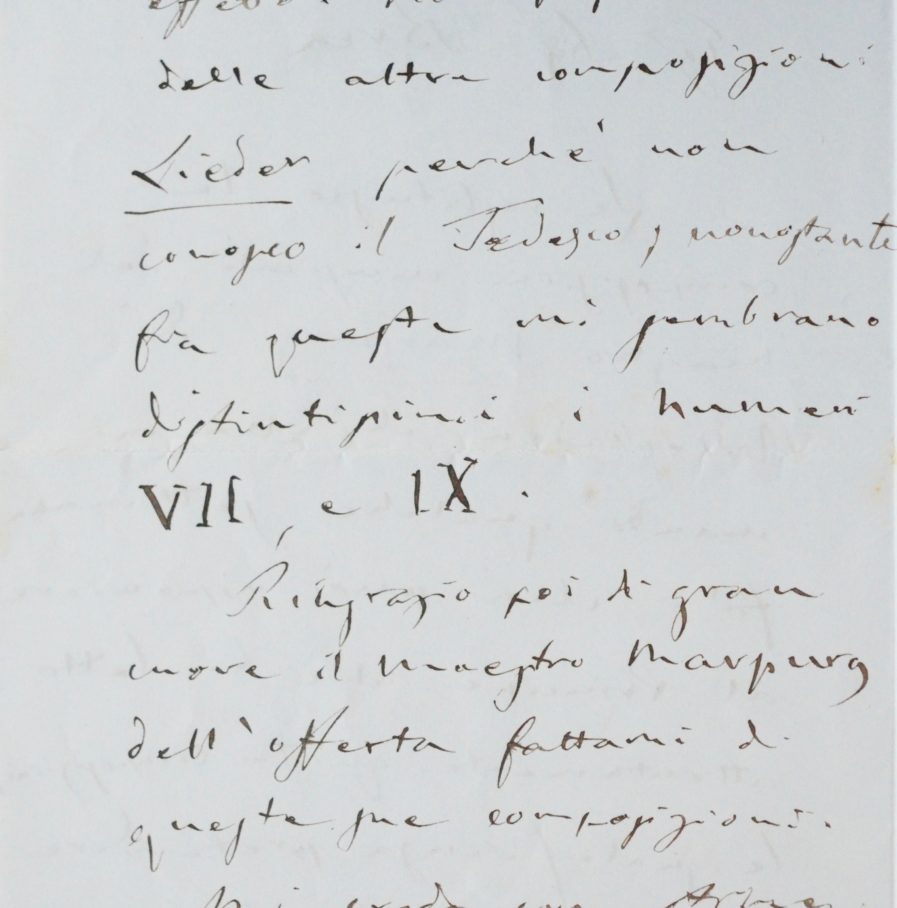 delle altre composizioni
Lieder perché non
conosco il Tedesco, nonostante
fra queste mi sembrano
distintissimi i numeri
VII, e IX.
Ringrazio poi di gran
cuore il Maestro Marpurg
dell'offerta fattami di
queste sue composizioni.